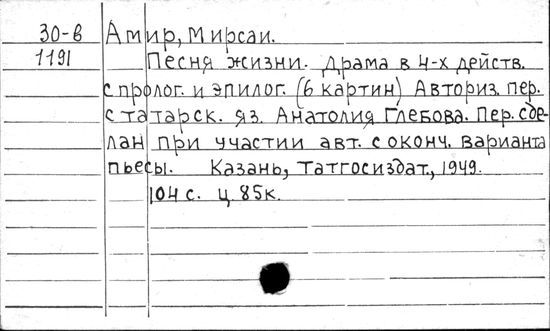 30-в Амир, Мирсаи.
1191 Песня жизни. Драма в 4-х действ.
с пролог. и эпилог. (6 картин) Авториз. пер.
с татарск. яз. Анатолия Глебова. Пер. сде-
лан при участии авт. с оконч. варианта
пьесы. Казань, Татгосиздат., 1949.
104 с. ц. 85к.